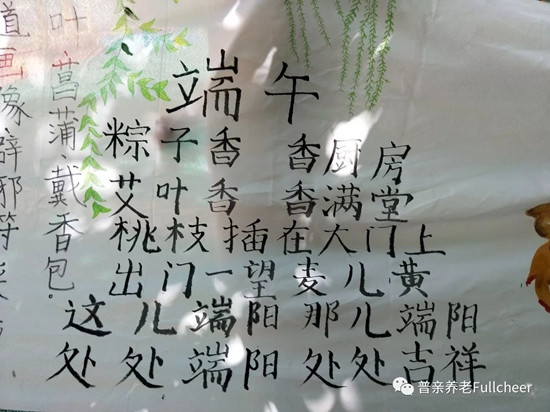 端午
粽子香 香厨房
艾叶香 香满堂
桃枝插在大门上
出门一望麦儿黄
这儿端阳那儿端阳
处处端阳处处吉祥
叶、菖蒲、戴香包。
道画像辟邪等
普亲养老Fullcheer